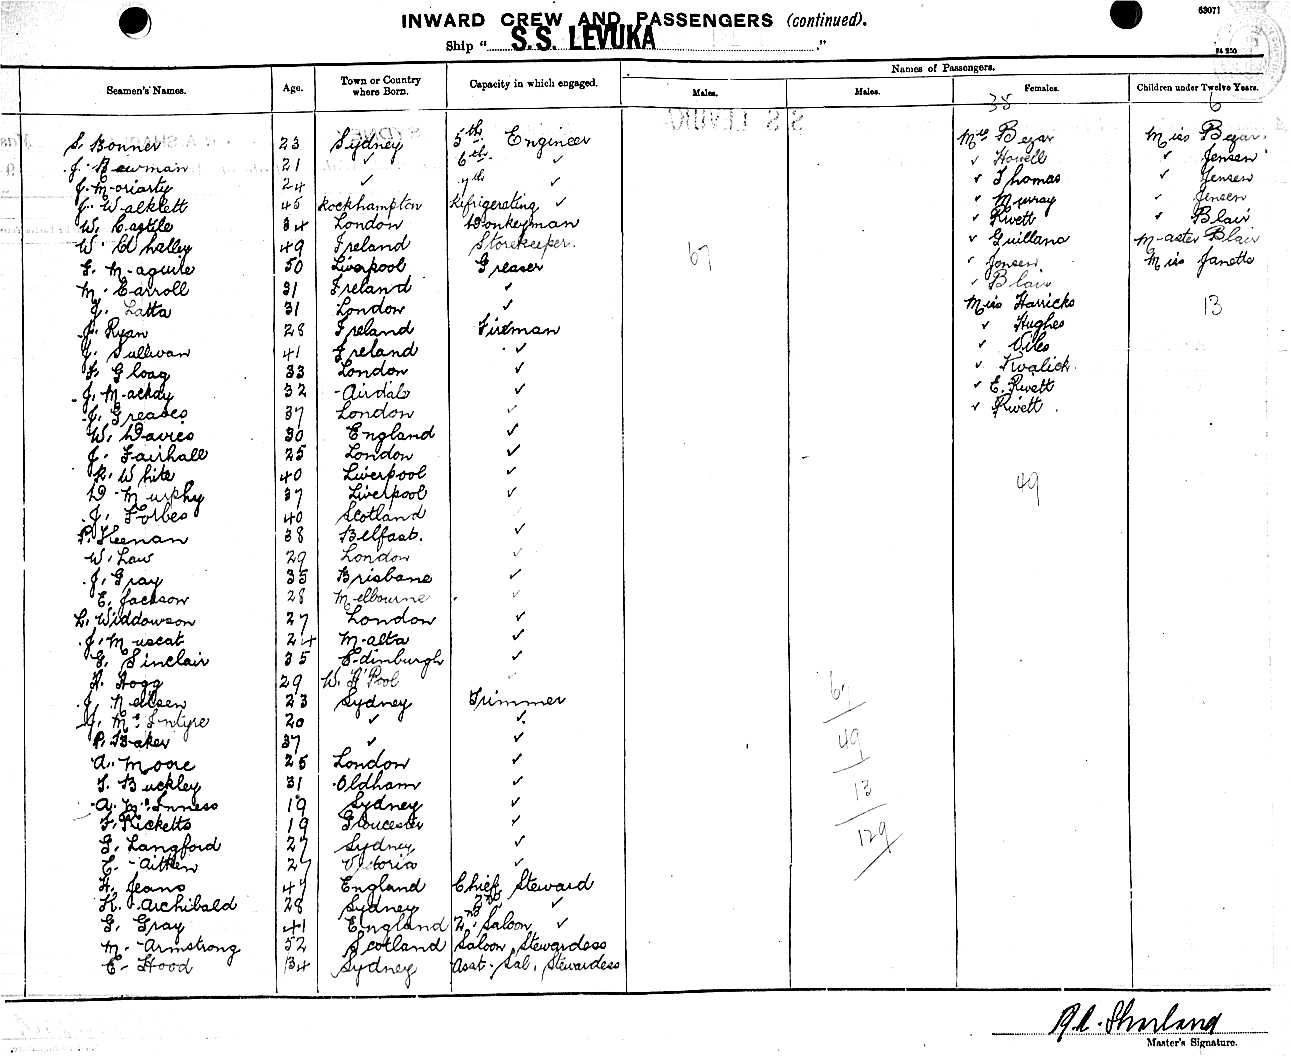 63071
INWARD CREW AND PASSENGERS (continued).
Ship " S.S. LEVUKA ."
Seamen's Names. Age. Town or Country where Born. Capacity in which engaged. Names of Passengers.
Males. Males. Females. Children under Twelve Years.
S. Bonner 23 Sydney 5th Engineer Mrs Bezar Miss Bezar
J. Bowman 21 ✓ 6th ✓ ✓ Howell ✓ Jensen
J. Moriarty 24 ✓ 7th ✓ ✓ Thomas ✓ Jensen
J. Walklett 45 Rockhampton Refrigerating ✓ ✓ Murray ✓ Jensen
W. Castle 34 London Donkeyman ✓ Rivett ✓ Blair
W. Whalley 49 Ireland Storekeeper. ✓ Guillana Master Blair
Maguire 50 Liverpool Greaser 67 ✓ Jensen Miss Janette
M. Carroll 31 Ireland ✓ ✓ Blair
J. Latta 31 London ✓ Miss Harricks 13
J. Ryan 28 Ireland Fireman ✓ Hughes
J. Sullivan 41 Ireland ✓ ✓ Viles
Gloag 33 London ✓ ✓ Kwalick
J. Mackay 32 Airdale ✓ ✓ E. Rivett
J. Greases 37 London ✓ ✓ Rivett
W. Davies 30 England ✓
J. Fairhall 25 London ✓
R. White 40 Liverpool ✓ 49
D. Murphy 37 Liverpool ✓
J. Forbes 40 Scotland
P. Keenan 38 Belfast. ✓
W. Law 29 London ✓
J. Gray 35 Brisbane ✓
E. Jackson 28 Melbourne ✓
L. Widdowson 27 London ✓
J. Muscat 24 Malta ✓
G. Sinclair 35 Edinburgh ✓
H. Hogg 29 W. H'Pool
J. Neilsen 23 Sydney Trimmer 6
J. McIntyre 20 ✓ ✓
P. Baker 37 ✓ ✓ 49
A. Moore 25 London ✓
T. Buckley 31 Oldham ✓ 13
A. McInness 19 Sydney ✓
F. Ricketts 19 Gloucester ✓ 129
G. Langford 27 Sydney ✓
E. Aitken 27 Victoria ✓
H. Jeans 47 England Chief Steward
H. Archibald 28 Sydney 2nd ✓
G. Gray 41 England 2nd Saloon ✓
M. Armstrong 52 Scotland Saloon Stewardess
E. Hood 34 Sydney Asst. Sal. Stewardess
Master's Signature.